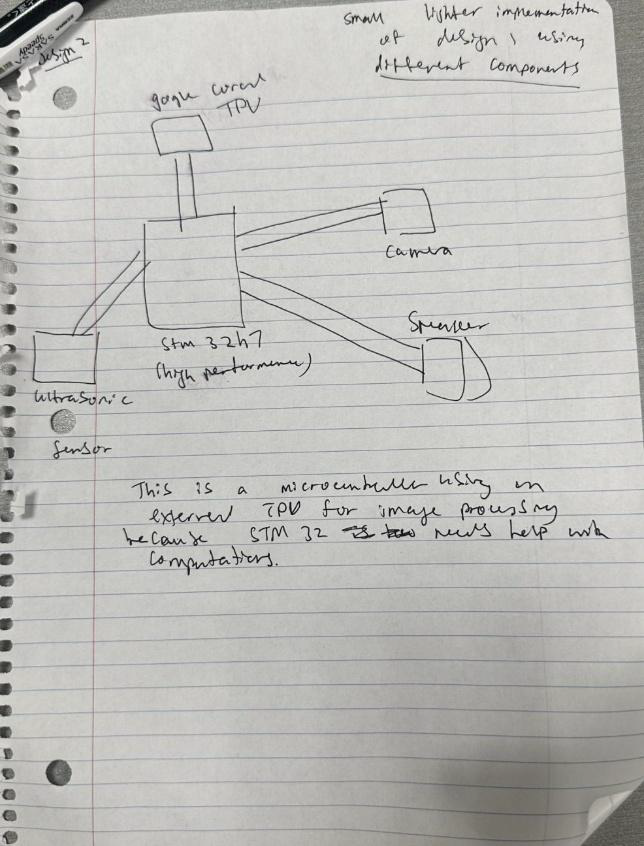 design 2
small lighter implementation
of design 1 using
different components
google coral
TPU
camera
Speaker
Stm 32h7
(high performance)
ultrasonic
Sensor
This is a microcontroller using an
external TPU for image processing
because STM 32 needs help with
computations.